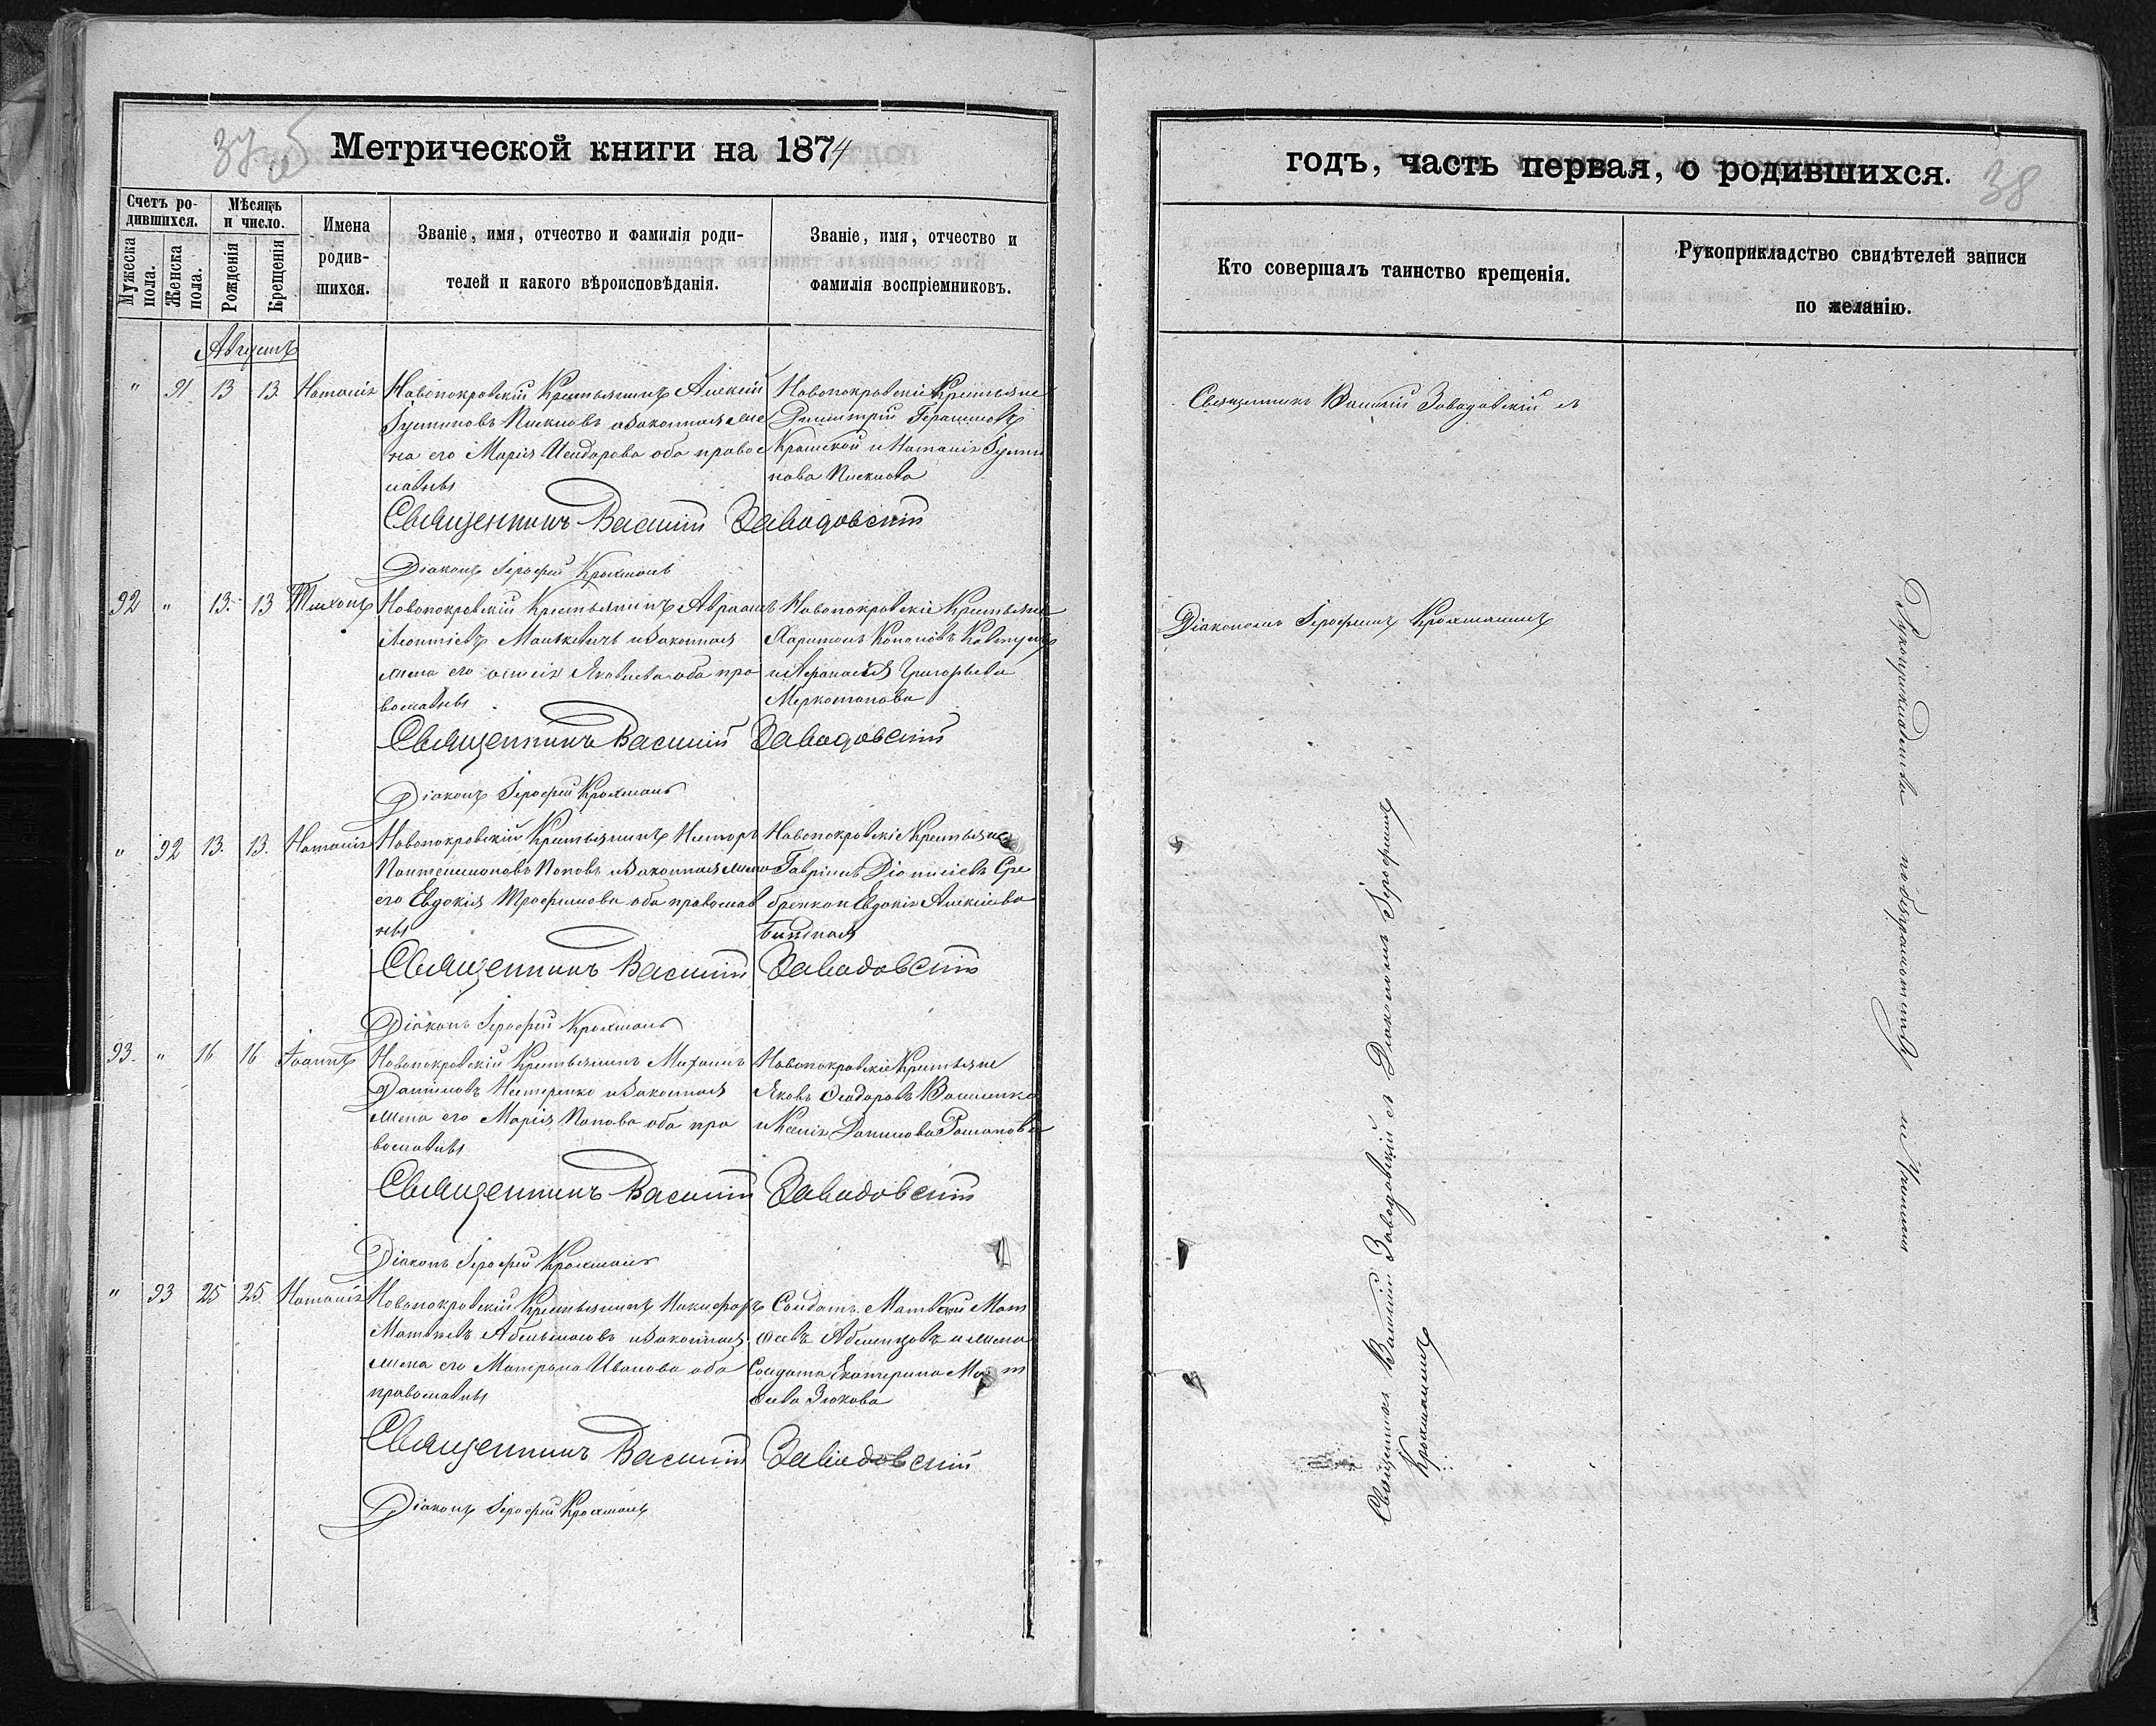 37 об
Метрической книги на 1874
Счетъ ро-
дившихся.
Мѣсяцъ
и число.
Мужеска
пола.
Женска
пола.
Рожденія
Крещенія
Имена
родив-
шихся.
Званіе, имя, отчество и фамилія роди-
телей и какого вѣроисповѣданія.
Званіе, имя, отчество и
фамилія воспріемниковъ.
Августъ
" 91 13 13. Наталія
Новопокровскій Крестьянинъ Алексій
Іустиновъ Пискловъ и законная же
на его Марія Исидорова оба правос
лавны
Новопокровскіе Крестьяне
Димитрій Герасимовъ
и Наталія Іусти
нова
Священникъ Василій Заводовскій
Діаконъ Іерофей Крохмаль
92 " 13. 13 Тихонъ
Новопокровскій Крестьянинъ Авраамъ
Леонтіевъ и законная
жена его Яковлева оба пра
вославны
Новопокровскіе Крестьяне
Харитонъ Кононовъ Ковтунъ
и Афанасія Григорьева
Меркотанова
Священникъ Василій Заводовскій
Діаконъ Іерофей Крохмаль
" 92 13. 13. Наталія
Новопокровскій Крестьянинъ Несторъ
Пантелимоновъ Поповъ и законная жена
его Евдокія Трофимова оба православ
ны
Новопокровскіе Крестьяне
Гавріилъ Діонисіевъ Сре
бренко и Евдокія Алексіева
Священникъ Василій Заводовскій
Діаконъ Іерофей Крохмаль
93. " 16 16 Іоаннъ
Новопокровскій Крестьянинъ Михаилъ
Даниловъ Нестеренко и законная
жена его Марія Попова оба пра
вославны
Новопокровскіе Крестьяне
Яковъ Ѳеодоровъ Василенко
и Ксенія Данилова Романова
Священникъ Василій Заводовскій
Діаконъ Іерофей Крохмаль
" 93 25 25. Наталія
Новопокровскій Крестьянинъ Никифоръ
Матвіевъ и законная
жена его Матрона Иванова оба
православны
Солдатъ Матвій Мат
ѳеевъ и жена
Солдата Екатерина Мат
ѳеева Зюкова
Священникъ Василій Заводовскій
Діаконъ Іерофей Крохмаль
годъ, часть первая, о родившихся.
38
Кто совершалъ таинство крещенія.
Рукоприкладство свидѣтелей записи
по желанію.
Священникъ Василій Заводовскій съ
Діакономъ Іерофеемъ Крохмалемъ
Священникъ Василій Заводовскій съ Діакономъ Іерофеемъ
Крохмалемъ
Рукоприкладства по безграмотству не учинили